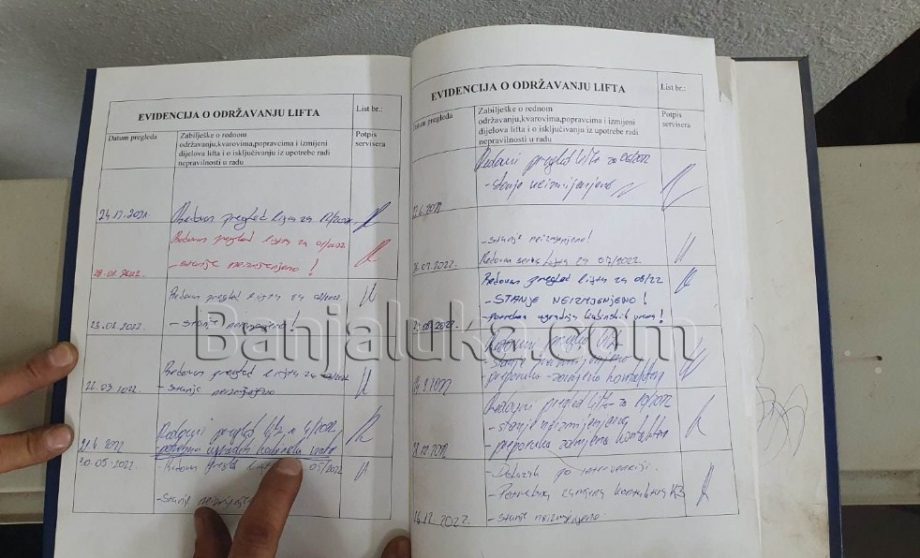 EVIDENCIJA O ODRŽAVANJU LIFTA
List br.:
Datum pregleda
Zabilješke o rednom
održavanju,kvarovima,popravcima i izmijeni
dijelova lifta i o isključivanju iz upotrebe radi
nepravilnosti u radu
Potpis
servisera
24.12.2021.
Redovan pregled lifta za 12/2021.
Redovan pregled lifta za 01/2022
28.01.2022.
- stanje neizmjenjeno !
Redovan pregled lifta za
2022.
- stanje neizmjenjeno !
Redovan pregled lifta za
03 2022.
- stanje neizmjenjeno
Redovni pregled lifta 4/2022
21.4.2022
potrebno ugradnja
30.05.2022.
Redovan pregled 05/2022
- Stanje
EVIDENCIJA O ODRŽAVANJU LIFTA
List br.:
Datum pregleda
Zabilješke o rednom
održavanju,kvarovima,popravcima i izmijeni
dijelova lifta i o isključivanju iz upotrebe radi
nepravilnosti u radu
Potpis
servisera
Redovni pregled lifta za 06/2022
- stanje neizmijenjeno
6.2022
- stanje neizmjenjeno!
07.2022.
Redovan servis lifta za 07/2022.
Redovan pregled lifta za 08/22
- STANJE NEIZMJENJENO !
08.2022.
- potrebna ugradnja !
Redovni pregled lifta
- stanje neizmijenjeno
- preporuka - zamjena kontaktera
9.2022
Redovni pregled lifta za 10/2022
- stanje neizmijenjeno
- preporuka zamjena kontaktera
10.2022
- Dolazak po intervenciji.
- Potrebna zamjena kontaktera K3
12.2022.
- stanje neizmijenjeno.
Banjaluka.com